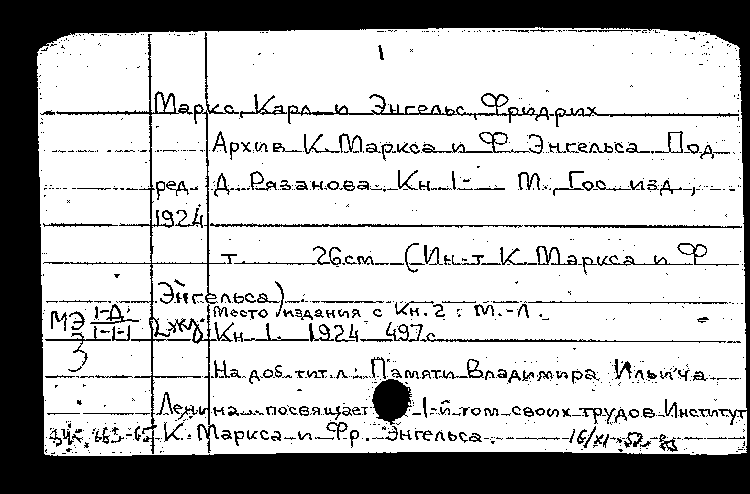 1
Маркс, Карл и Энгельс, Фридрих
Архив К. Маркса и Ф. Энгельса. Под
ред. Д. Рязанова. Кн. 1- М., Гос. изд.,
1924
т. 26см (Ин-т К. Маркса и Ф.
Энгельса).
Место издания с Кн. 2: М.-Л.
МЭ 1-Д Кн. 1. 1924 497с.
1-1-1
3
На доб. тит. л: Памяти Владимира Ильича
Ленина посвящает 1-й том своих трудов Институт
К. Маркса и Фр. Энгельса. 16/XI-52